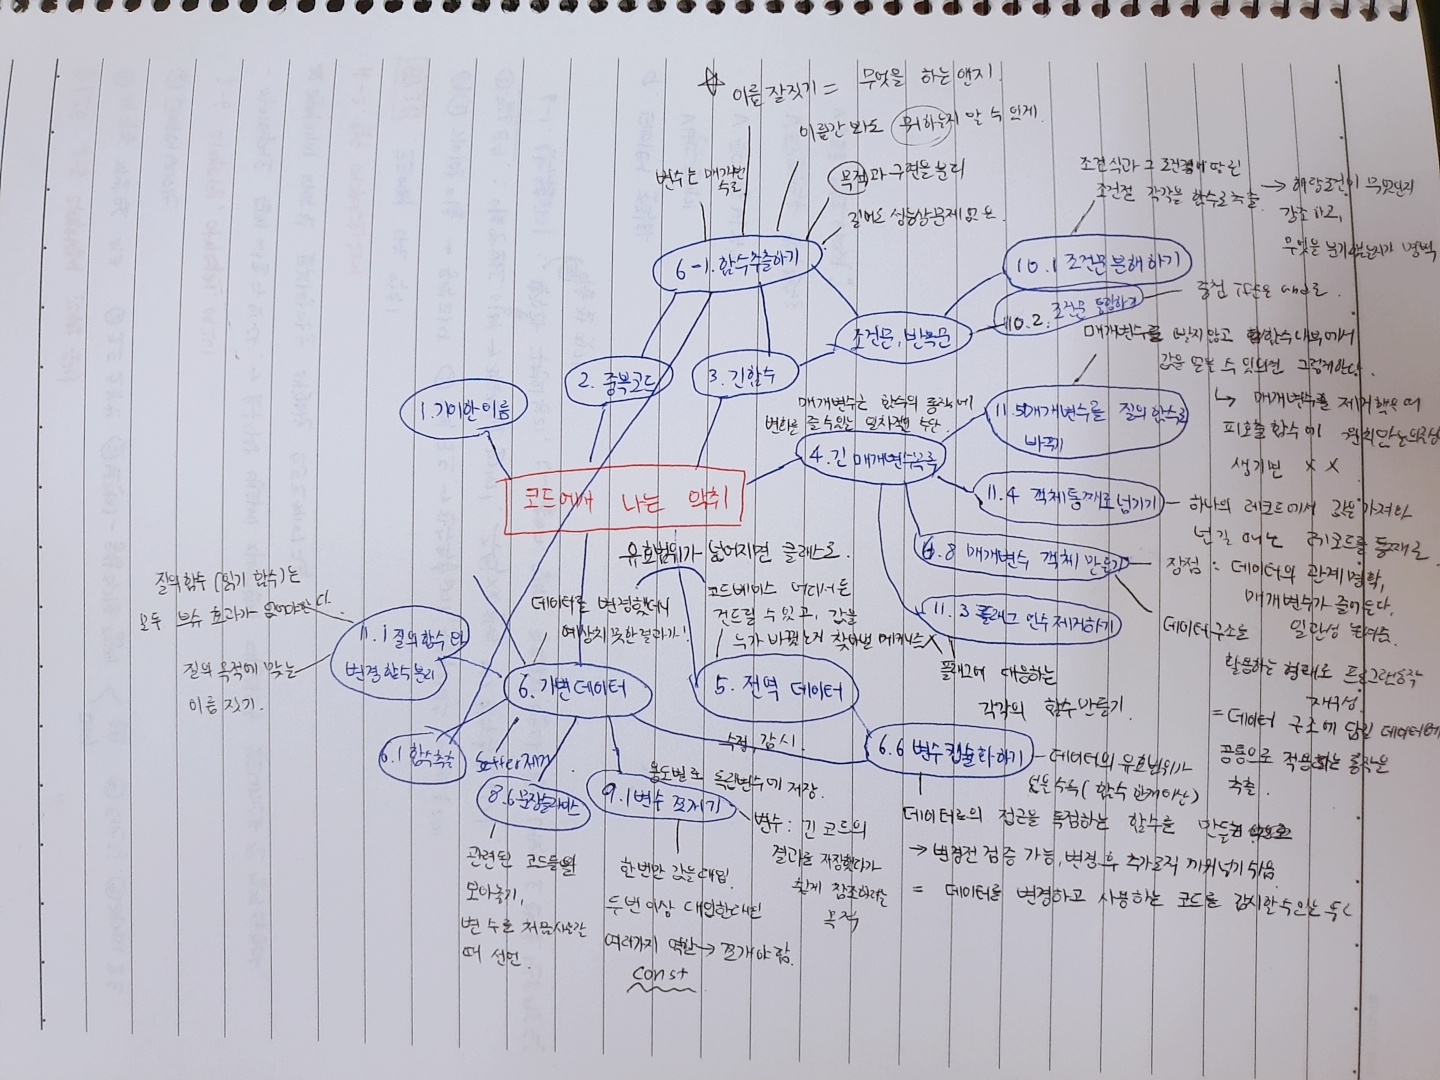 이름 잘짓기 = 무엇을 하는 앤지.
이름간 봐도 뭐하는지 알 수 있게.
변수는 매개변수로.
목적과 구현을 분리
길어도 성능상문제 없음.
6-1. 함수추출하기
조건식과 그 조건절에 딸린
조건절 각각을 함수로 추출.
→ 해당조건이 무엇인지
강조하고,
무엇을 분기했는지가 명백
10.1 조건문 분해하기
10.2. 조건문 통합하기
조건문, 반복문
2. 중복코드
3. 긴함수
1. 기이한 이름
매개변수를 받지않고 함수내부에서
값을 얻을 수 있으면 그렇게한다.
↳ 매개변수를 제거했을 때
피호출함수에 원치않는의존성
생기면 X X
11.5 매개변수를 질의 함수로
바꾸기
매개변수는 함수의 동작에
변화를 줄 수 있는 일차적인 수단.
4. 긴 매개변수목록
코드에서 나는 악취
11.4 객체통째로넘기기
하나의 레코드에서 값을 가져와
넘길 때는 레코드를 통째로.
6.8 매개변수 객체 만들기
장점 : 데이터의 관계 명확,
매개변수가 줄어든다,
일관성 높여줌.
데이터구조를
활용하는 형태로 프로그램동작
재구성.
= 데이터 구조에 담긴 데이터에
공통으로 적용하는 동작을
추출.
11.3 플래그 인수 제거하기
플래그에 대응하는
각각의 함수만들기.
유효범위가 넓어지면 클래스로.
데이터를 변경했더니
예상치 못한 결과가!
코드베이스 어디서든
건드릴 수 있고, 값을
누가 바꿨는지 찾아낼 메커니즘X
질의함수 (읽기 함수)는
모두 부수 효과가 없어야한다.
11.1 질의함수와
변경함수분리
질의 목적에 맞는
이름 짓기.
6. 가변데이터
5. 전역 데이터
6.1 함수추출
setter제거
수정, 감시.
6.6 변수 캡슐화하기
데이터의 유효범위가
넓을수록 (함수 한개이상)
데이터로의 접근을 독점하는 함수를
→ 변경전 검증 가능, 변경 후 추가로직 끼워넣기 쉬움
= 데이터를 변경하고 사용하는 코드를 감시할수있는
8.6 문장슬라이스
9.1 변수 쪼개기
용도별로 독립변수에 저장.
변수 : 긴 코드의
결과를 저장했다가
쉽게 참조하려는
목적
관련된 코드들을
모아놓기,
변수는 처음사용할
때 선언.
한번만 값을대입.
두번이상 대입한다면
여러가지 역할 → 쪼개야 함.
const